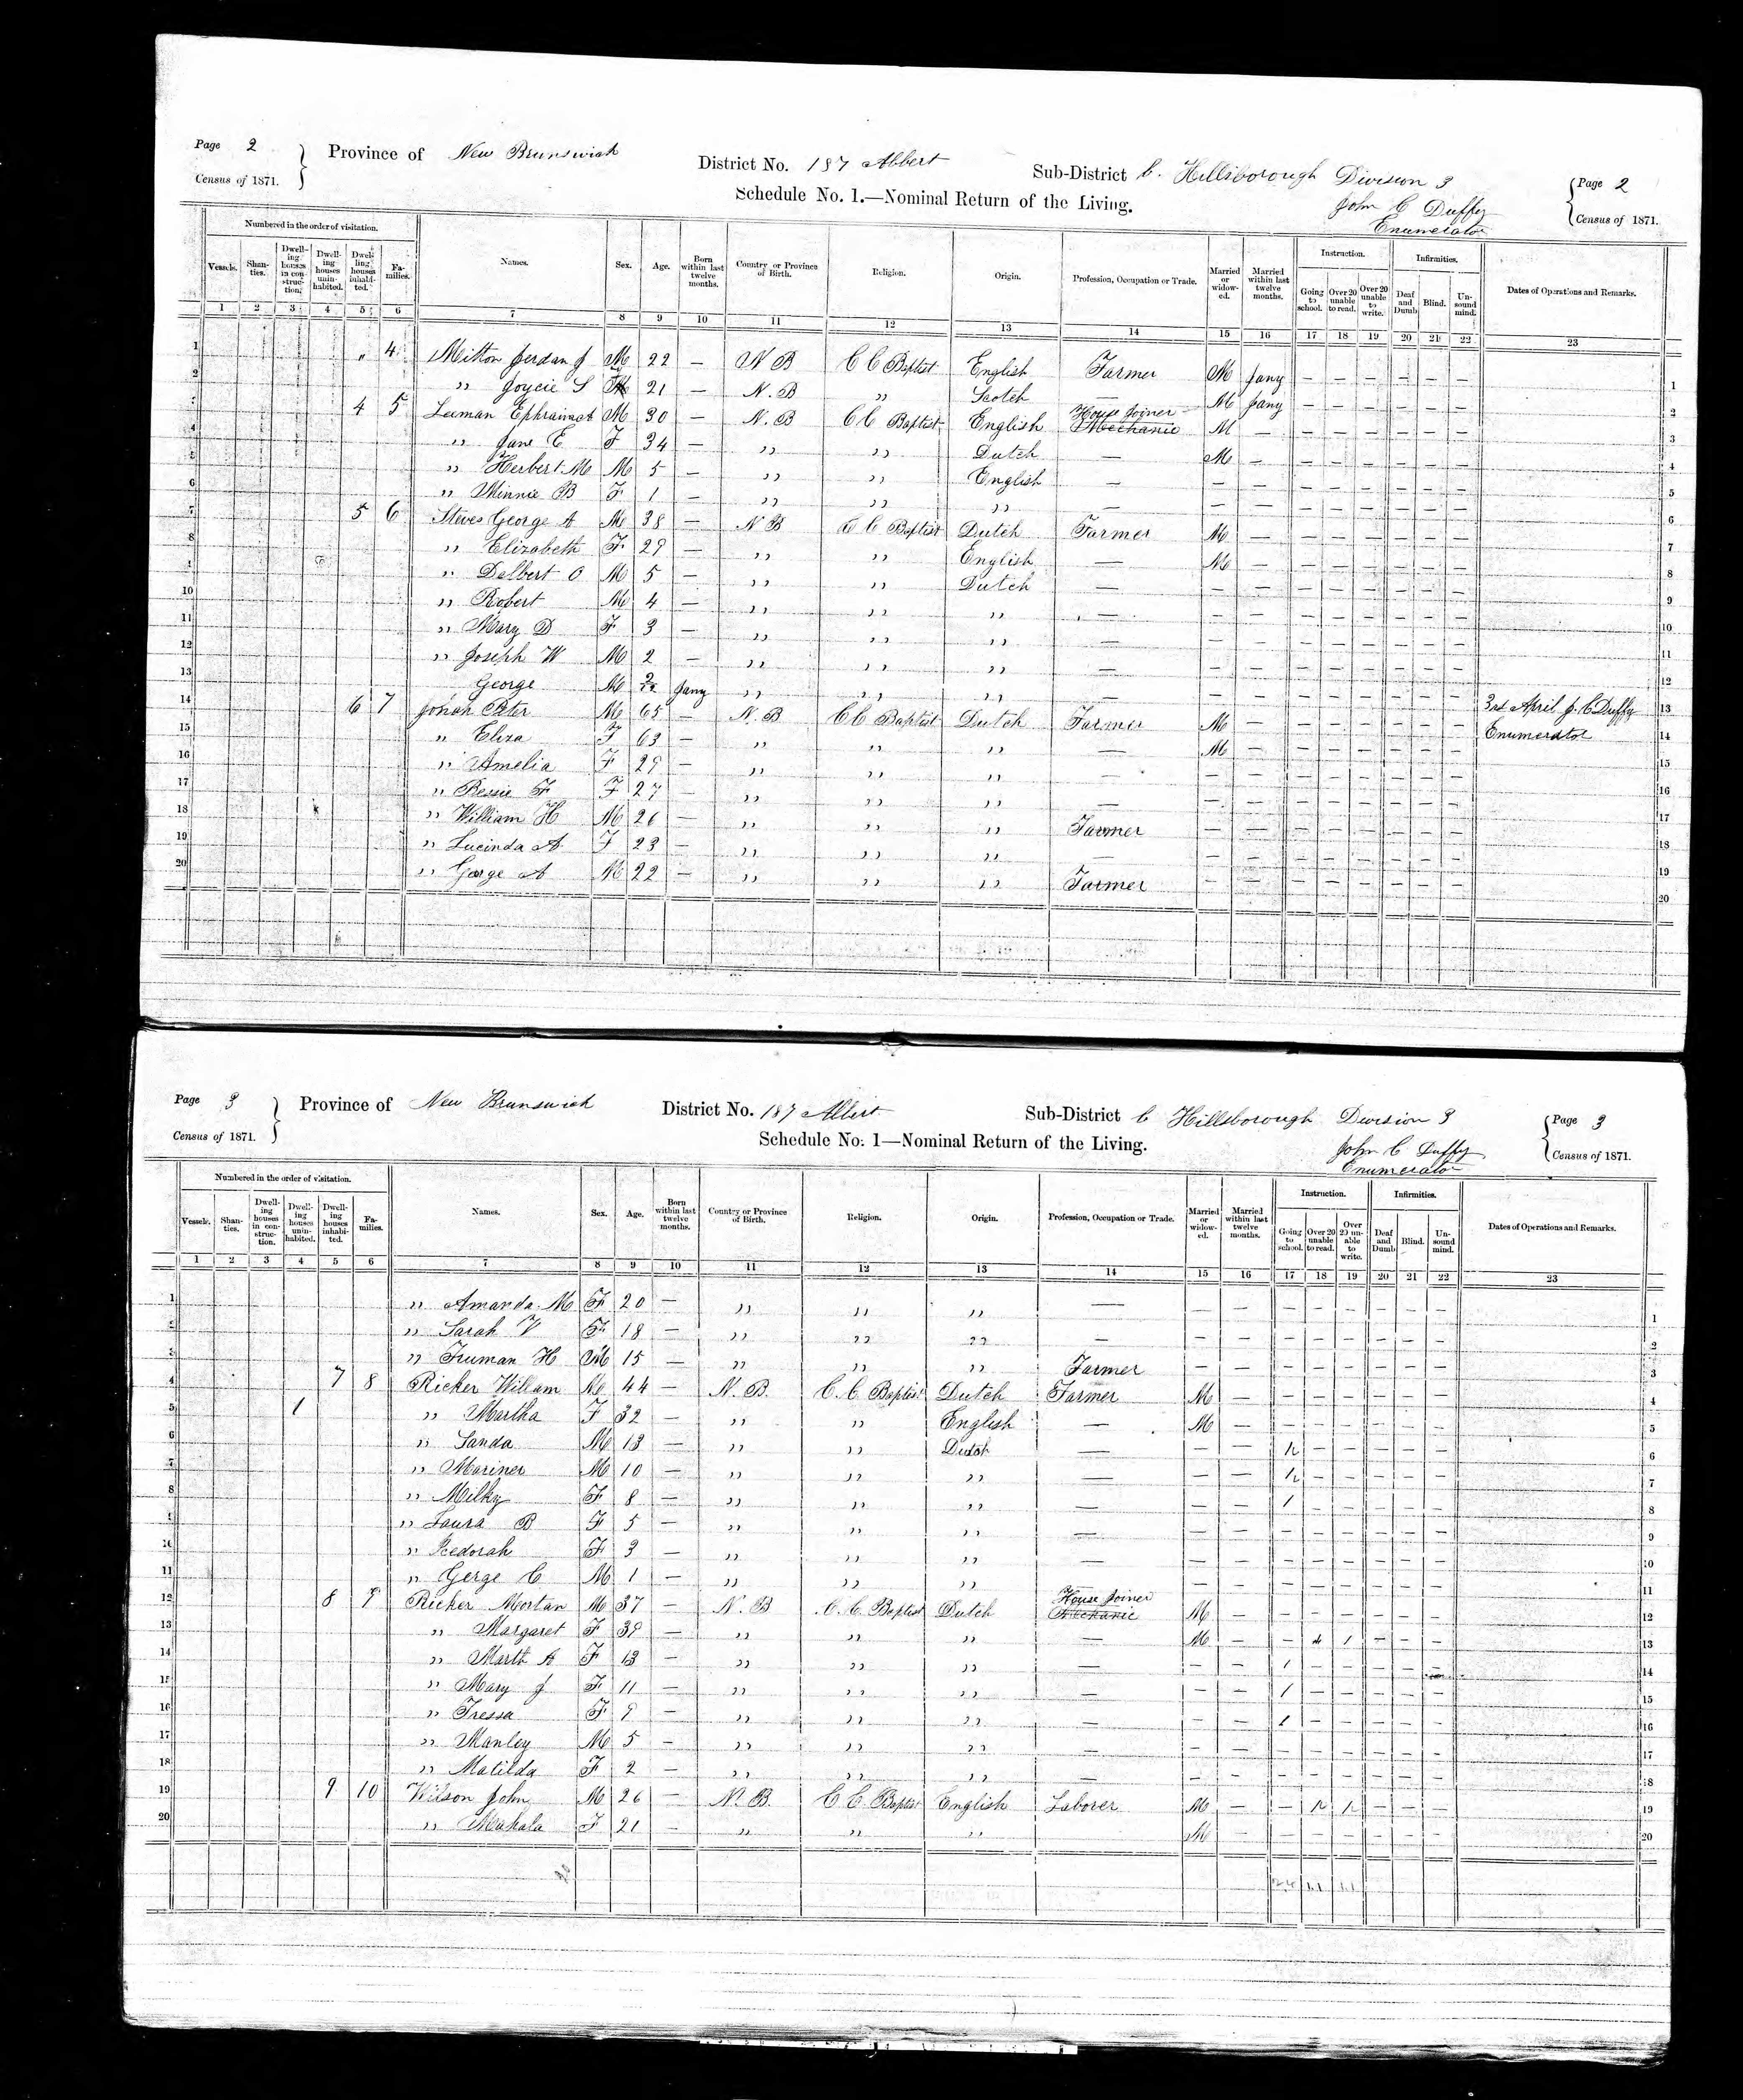 Page 2 Province of New Brunswick District No. 187 Albert Sub-District C. Hillsborough Division 3 Page 2
Census of 1871. Schedule No. 1.—Nominal Return of the Living. John C Duffy Census of 1871.
Enumerator
Numbered in the order of visitation. Instruction. Infirmities.
Vessels. Shanties. Dwelling houses in construction. Dwelling houses uninhabited. Dwelling houses inhabited. Families. Names. Sex. Age. Born within last twelve months. Country or Province of Birth. Religion. Origin. Profession, Occupation or Trade. Married or widowed. Married within last twelve months. Going to school. Over 20 unable to read. Over 20 unable to write. Deaf and Dumb Blind. Unsound mind. Dates of Operations and Remarks.
1 2 3 4 5 6 7 8 9 10 11 12 13 14 15 16 17 18 19 20 21 22 23
1 " 4 Mitton Jerdan J M 22 — N B C C Baptist English Farmer M Jany — — — — — — 1
2 " Joycie S F 21 — N. B " Scotch — M Jany — — — — — — 2
3 4 5 Leeman Ephraim A M 30 — N. B C C Baptist English House Joiner Mechanic M — — — — — — — 3
4 " Jane E F 34 — " " Dutch — M — — — — — — — 4
5 " Herbert M M 5 — " " English — — — — — — — — — 5
6 " Minnie B F 1 — " " " — — — — — — — — — 6
7 5 6 Steves George A M 38 — N B C C Baptist Dutch Farmer M — — — — — — — 7
8 " Elizabeth F 29 — " " English — M — — — — — — — 8
9 " Delbert O M 5 — " " Dutch — — — — — — — — — 9
10 " Robert M 4 — " " " — — — — — — — — — 10
11 " Mary D F 3 — " " " — — — — — — — — — 11
12 " Joseph W M 2 — " " " — — — — — — — — — 12
13 George M 3/12 Jany " " " — — — — — — — — — 3rd April J. C Duffy 13
14 6 7 Jonah Peter M 65 — N. B C C Baptist Dutch Farmer M — — — — — — — Enumerator 14
15 " Eliza F 63 — " " " — M — — — — — — — 15
16 " Amelia F 29 — " " " — — — — — — — — — 16
17 " Bessie F F 27 — " " " — — — — — — — — — 17
18 " William H M 26 — " " " Farmer — — — — — — — — 18
19 " Lucinda A F 23 — " " " — — — — — — — — — 19
20 " Gorge A M 22 — " " " Farmer — — — — — — — — 20
Page 3 Province of New Brunswick District No. 187 Albert Sub-District C Hillsborough Division 3 Page 3
Census of 1871. Schedule No. 1—Nominal Return of the Living. John C Duffy Census of 1871.
Enumerator
Numbered in the order of visitation. Instruction. Infirmities.
Vessels. Shanties. Dwelling houses in construction. Dwelling houses uninhabited. Dwelling houses inhabited. Families. Names. Sex. Age. Born within last twelve months. Country or Province of Birth. Religion. Origin. Profession, Occupation or Trade. Married or widowed. Married within last twelve months. Going to school. Over 20 unable to read. Over 20 unable to write. Deaf and Dumb Blind. Unsound mind. Dates of Operations and Remarks.
1 2 3 4 5 6 7 8 9 10 11 12 13 14 15 16 17 18 19 20 21 22 23
1 " Amanda M F 20 — " " " — — — — — — — — — 1
2 " Sarah V F 18 — " " " — — — — — — — — — 2
3 " Truman H M 15 — " " " Farmer — — — — — — — — 3
4 7 8 Ricker Willam M 44 — N. B. C. C. Baptist Dutch Farmer M — — — — — — — 4
5 1 " Martha F 32 — " " English — M — — — — — — — 5
6 " Sanda M 13 — " " Dutch — — — 1 — — — — — 6
7 " Mariner M 10 — " " " — — — 1 — — — — — 7
8 " Milky F 8 — " " " — — — 1 — — — — — 8
9 " Laura B F 5 — " " " — — — — — — — — — 9
10 " Kedorah F 3 — " " " — — — — — — — — — 10
11 " Gerge C M 1 — " " " — — — — — — — — — 11
12 8 9 Ricker Mortan M 37 — N. B C. C. Baptist Dutch House Joiner Mechanic M — — — — — — — 12
13 " Margaret F 39 — " " " — M — — 1 1 — — — 13
14 " Marth A F 13 — " " " — — — 1 — — — — — 14
15 " Mary J F 11 — " " " — — — 1 — — — — — 15
16 " Tressa F 9 — " " " — — — 1 — — — — — 16
17 " Manley M 5 — " " " — — — — — — — — — 17
18 " Matilda F 2 — " " " — — — — — — — — — 18
19 9 10 Wilson John M 26 — N. B. C C. Baptist English Laborer M — — 1 1 — — — 19
20 " Mahala F 21 — " " " M — — — — — — — 20